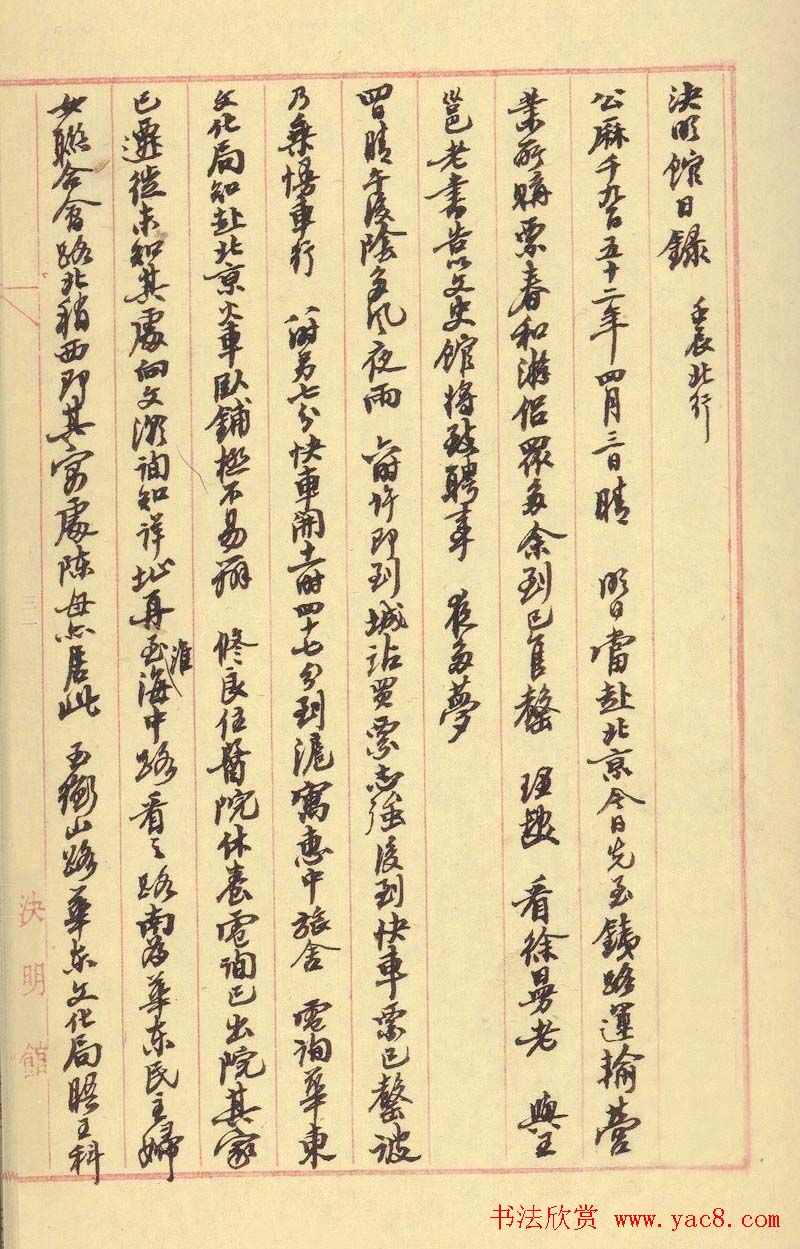 決明館日錄 壬辰北行
公厤千九百五十二年四月三日晴 明日當赴北京今日先至鐵路運輸營
業所購票春和游侶眾多余到已售罄 理髮 看徐曼老 與王
邕老書告以文史館將致聘事 夜多夢
四日晴午後陰多風夜雨 六時許即到城站買票志強後到快車票已罄
乃乘慢車行 八時另七分快車開十一時四十七分到滬寓惠中旅舍 電詢華東
文化局知赴北京火車臥鋪極不易辦 修良住醫院休養電詢已出院其家
已遷徙未知其處向文 詢知詳址再至淮海中路看之路南為華東民主婦
女聯合會路北稍西即其寓處陳母亦居此 至衡山路華東文化局晤王科
決明館
书法欣赏 www.yac8.com